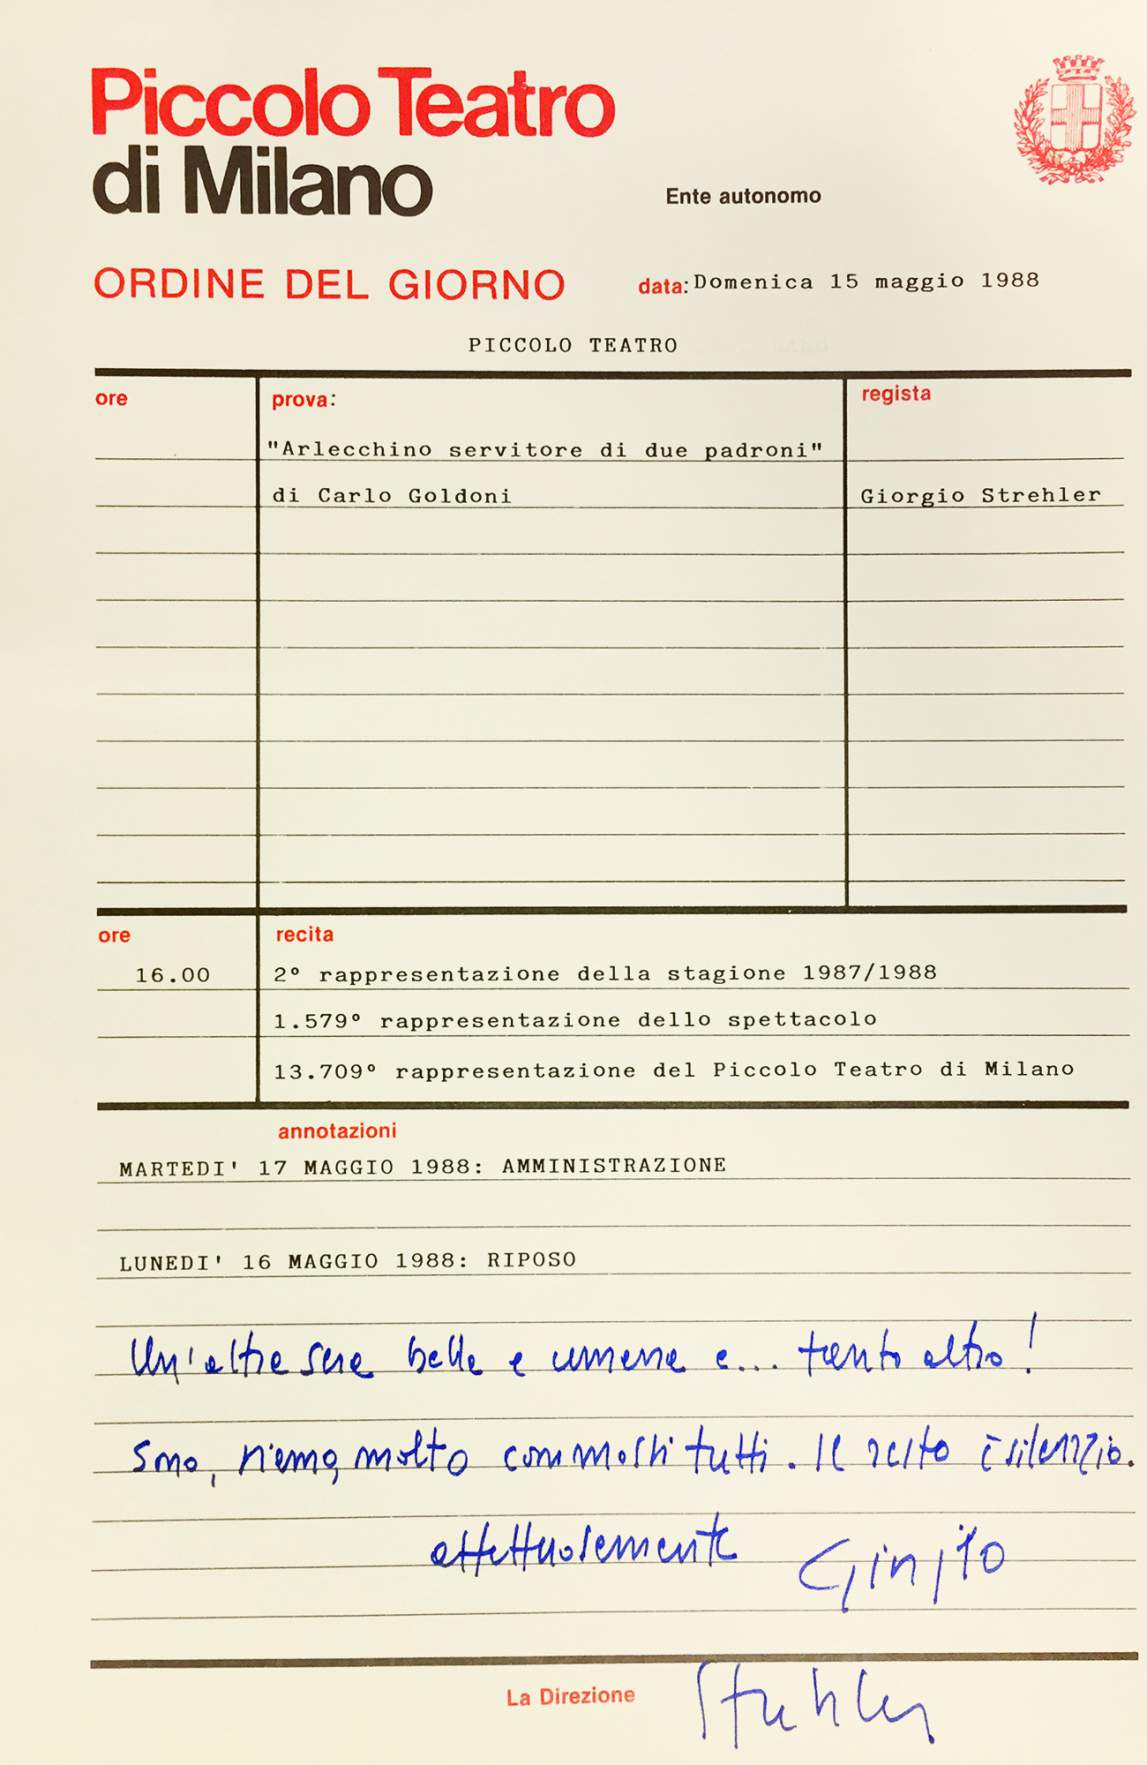 Piccolo Teatro
di Milano
Ente autonomo
ORDINE DEL GIORNO data: Domenica 15 maggio 1988
PICCOLO TEATRO
ore prova: regista
"Arlecchino servitore di due padroni"
di Carlo Goldoni Giorgio Strehler
ore recita
16.00 2° rappresentazione della stagione 1987/1988
1.579° rappresentazione dello spettacolo
13.709° rappresentazione del Piccolo Teatro di Milano
annotazioni
MARTEDI' 17 MAGGIO 1988: AMMINISTRAZIONE
LUNEDI' 16 MAGGIO 1988: RIPOSO
Un'altra sera bella e umana e... tanto altro!
Sono, siamo, molto commossi tutti. Il resto è silenzio.
affettuosamente Giorgio
La Direzione Strehler